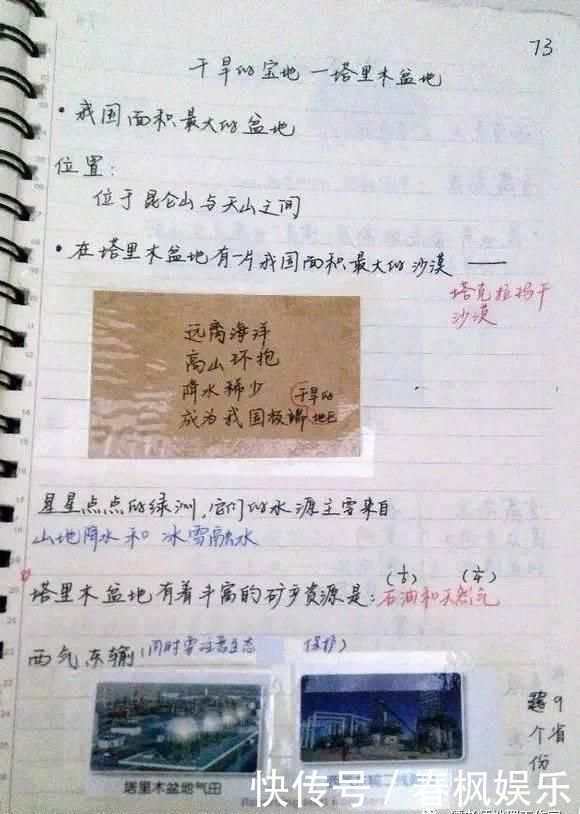 73
干旱的宝地 — 塔里木盆地
• 我国面积最大的盆地
位置:
位于昆仑山与天山之间
• 在塔里木盆地有一片我国面积最大的沙漠 ——
塔克拉玛干
沙漠
远离海洋
高山环抱
降水稀少
成为我国极端干旱的地区
星星点点的绿洲,它们的水源主要来自
山地降水和冰雪融水
塔里木盆地有着丰富的矿产资源是:石油和天然气
西气东输(同时要注意生态保护)
9
个
省
份
塔里木盆地气田
快传号/春枫娱乐